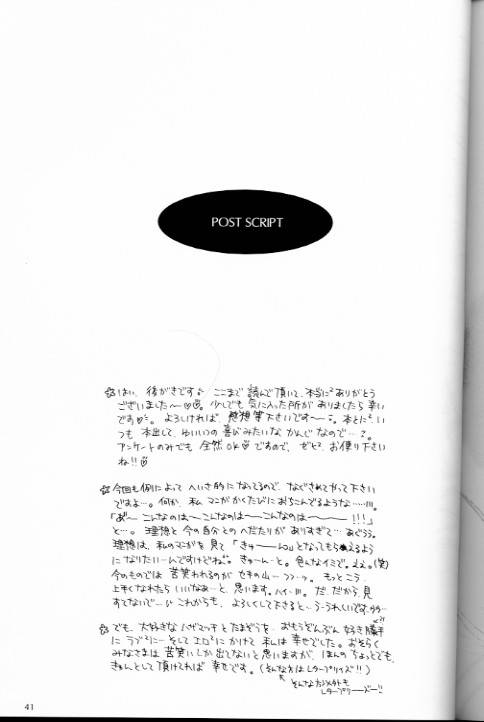 POST SCRIPT
☆はい、後がきです♪ ここまで 読んで頂いて、本当に²ありがとう
ございました〜♡♡。少しでも 気に入った所が ありましたら 幸い
です♡ 。よろしければ、感想等下さいです〜 。本とに²、い
つも 本出して、ゆいいつの 喜びみたいな かんじ なので… 。
アンケートのみでも 全然OK♡ですので、ぜひ² お便り下さい
ね!!♡
☆今回も例によって へいさ的に なってるので、なぐさめてやって下さい
ですよ…。何か、私 マンガかくたびに おちこんでるような……!!!。
「あ゛〜 こんなのは〜こんなのは〜こんなのは———!!!」
と…。理想と 今の自分との へだたりが ありすぎて… あぐぅぅ。
理想は、私のマンガを 見て「きゅーん」となってもらえるよう
に なりたいーんですけどね 。きゅーんーと。色んなイミで。 (笑)
今のものでは 苦笑われるのが セキの山— 。もっとこう
上手くなれたら いいなぁーと、思います。ハイ…!!!。だ、だから、見
すてないで… これからも、よろしくして下さると… う・うれしいです。
☆でも、大好きな と たまぞうを… おもうぞんぶん 好き勝手
に ラブ²に— そして エロ²に かけて 私は 幸せでした。おそらく
みなさまは 苦笑いしか 出てないと 思いますが、ほんの ちょっとでも、
きゅんとして 頂ければ 幸です。(そんな方は レタープリイズ!!)
そんな方 も
レタープリ〜ズ〜!!
41